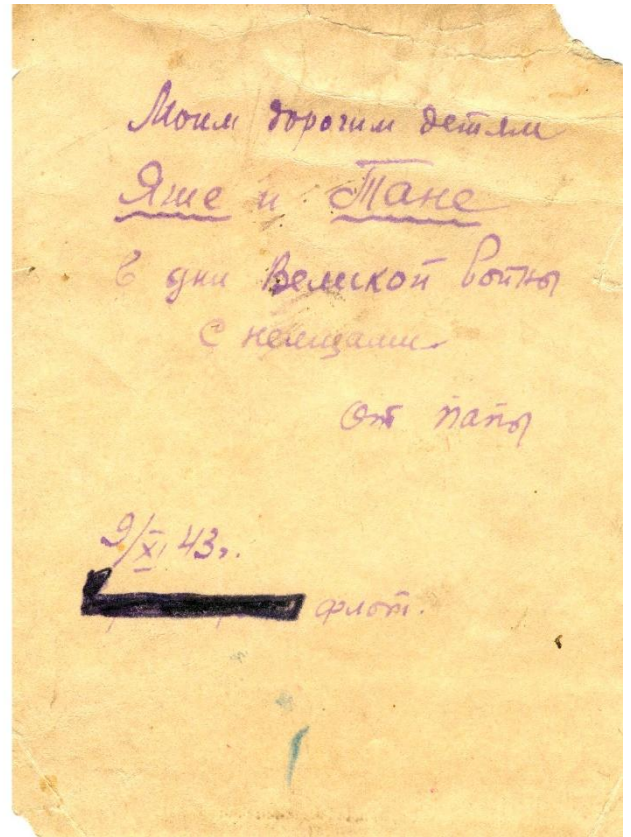 Моим дорогим детям
Яше и Тане
в дни Великой войны
с немцами.
От папы
9/XI 43г.
флот.